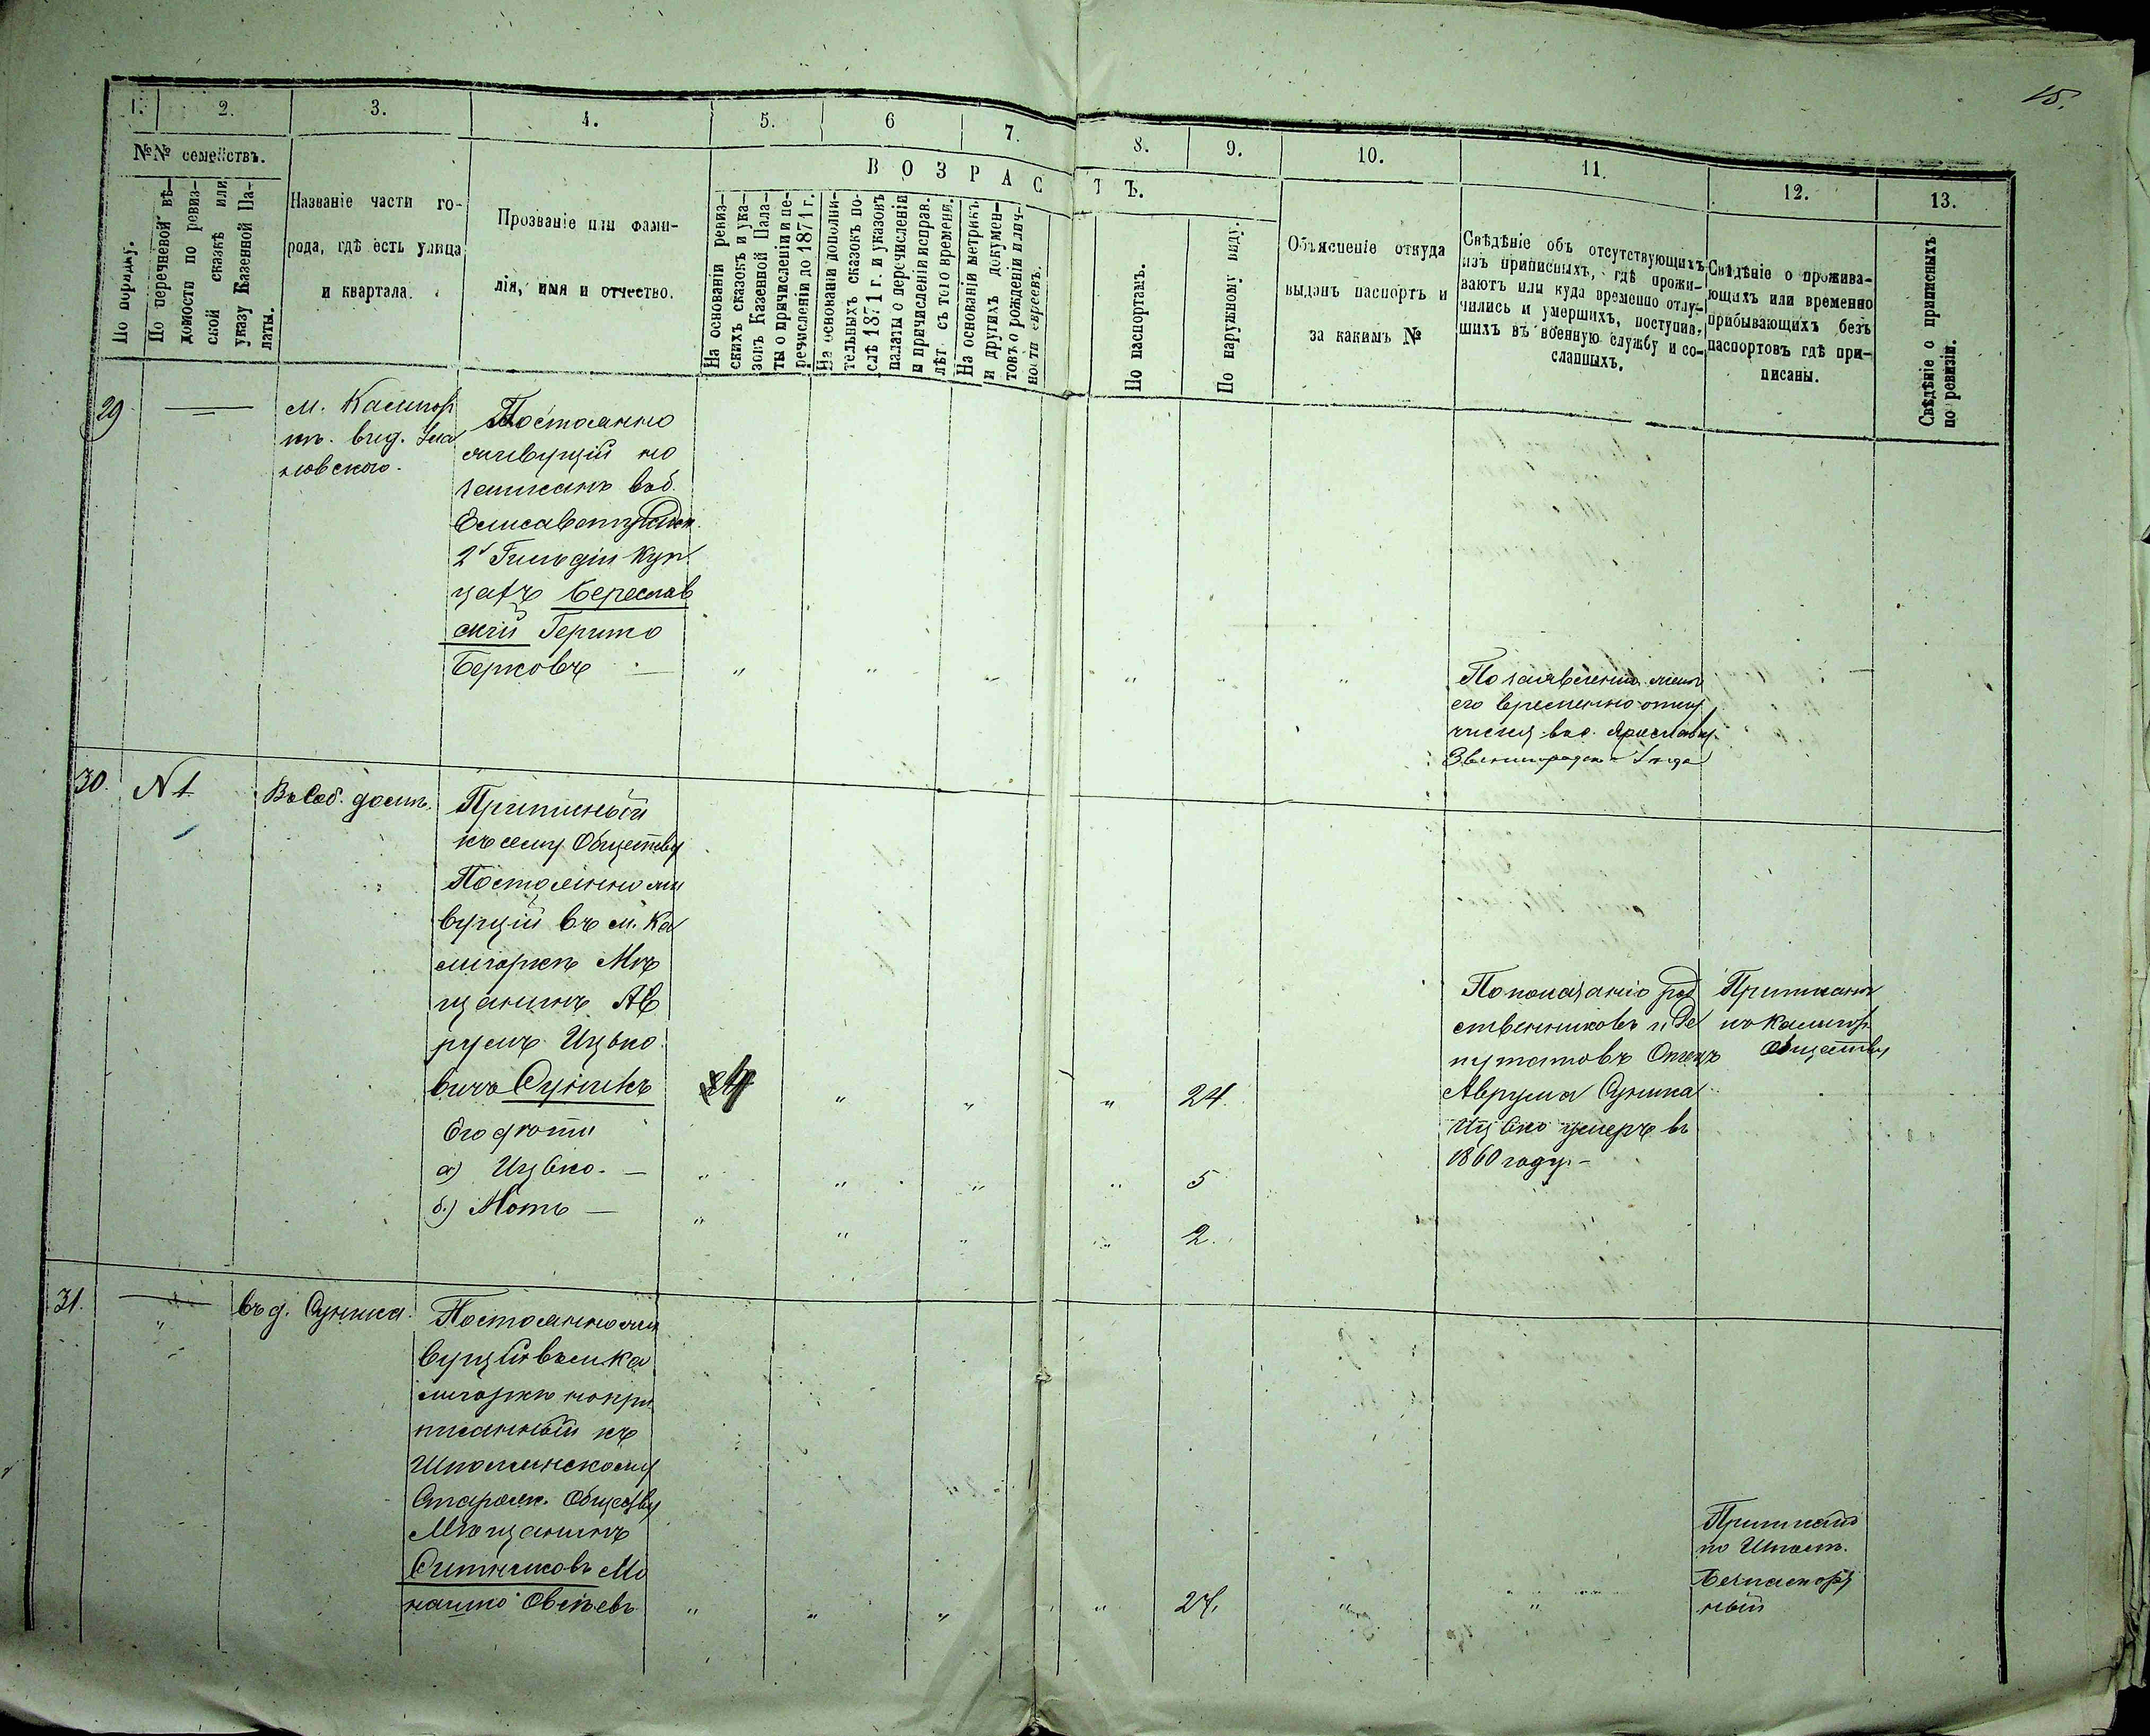 15.
1. 2. 3. 4. 5. 6 7. 8. 9. 10. 11. 12. 13.
№№ семействъ.
По порядку.
По перечневой вѣ-
домости по ревиз-
ской сказкѣ или
указу Казенной Па-
латы.
Названіе части го-
рода, гдѣ есть улица
и квартала.
Прозваніе или фами-
лія, имя и отчество.
ВОЗРАСТЪ.
На основаніи ревиз-
скихъ сказокъ и ука-
зовъ Казенной Пала-
ты о причисленіи и пе-
речисленіи до 1871 г.
На основаніи дополни-
тельныхъ сказокъ по-
слѣ 1871 г. и указовъ
палаты о перечисленіи
и причисленіи исправ.
лѣт съ того времени.
На основаніи метрикъ
и другихъ докумен-
товъ о рожденіи и лич-
ности евреевъ.
По паспортамъ.
По наружному виду.
Объясненіе откуда
выданъ паспортъ и
за какимъ №
Свѣдѣніе объ отсутствующихъ
изъ приписныхъ, гдѣ прожи-
ваютъ или куда временно отлу-
чились и умершихъ, поступив-
шихъ въ военную службу и со-
сланныхъ.
Свѣдѣніе о прожива-
ющихъ или временно
прибывающихъ безъ
паспортовъ гдѣ при-
писаны.
Свѣдѣніе о приписныхъ
по ревизіи.
29
м. Калигор
ловского.
Постоянно
живущій но
записанъ въ
2й Гильдіи куп
цахъ Береслав
скій Гершко
Берковъ
По заявленію жены
его временно отлу
Звенигородск. уезда
30. N 1. Въ Соб. домѣ.
Приписный
къ сему Обществу
Постоянно жи
вущій въ м. Ка
лигоркѣ Мѣ
щанинъ Ав
румъ Ицько
вичъ Суникъ 24 " " " 24.
Его дѣти
а) Ицько. — " " " " 5
б.) Мотъ — " " " " 2.
По показанію род
ственниковъ и Де
путатовъ Отецъ
Аврума Суника
Ицько умеръ въ
1860 году. –
Приписанъ
по Калигор.
Обществу
31. въ д. Суника.
Постоянно жи
вущій въ м. Ка
лигоркѣ но при
писанный къ
Шполянскому
Обществу
Мѣщанинъ
Ситниковъ Мо
" " " " 27. " "
Приписанъ
по Шполѣ.
Безпаспорт
ный